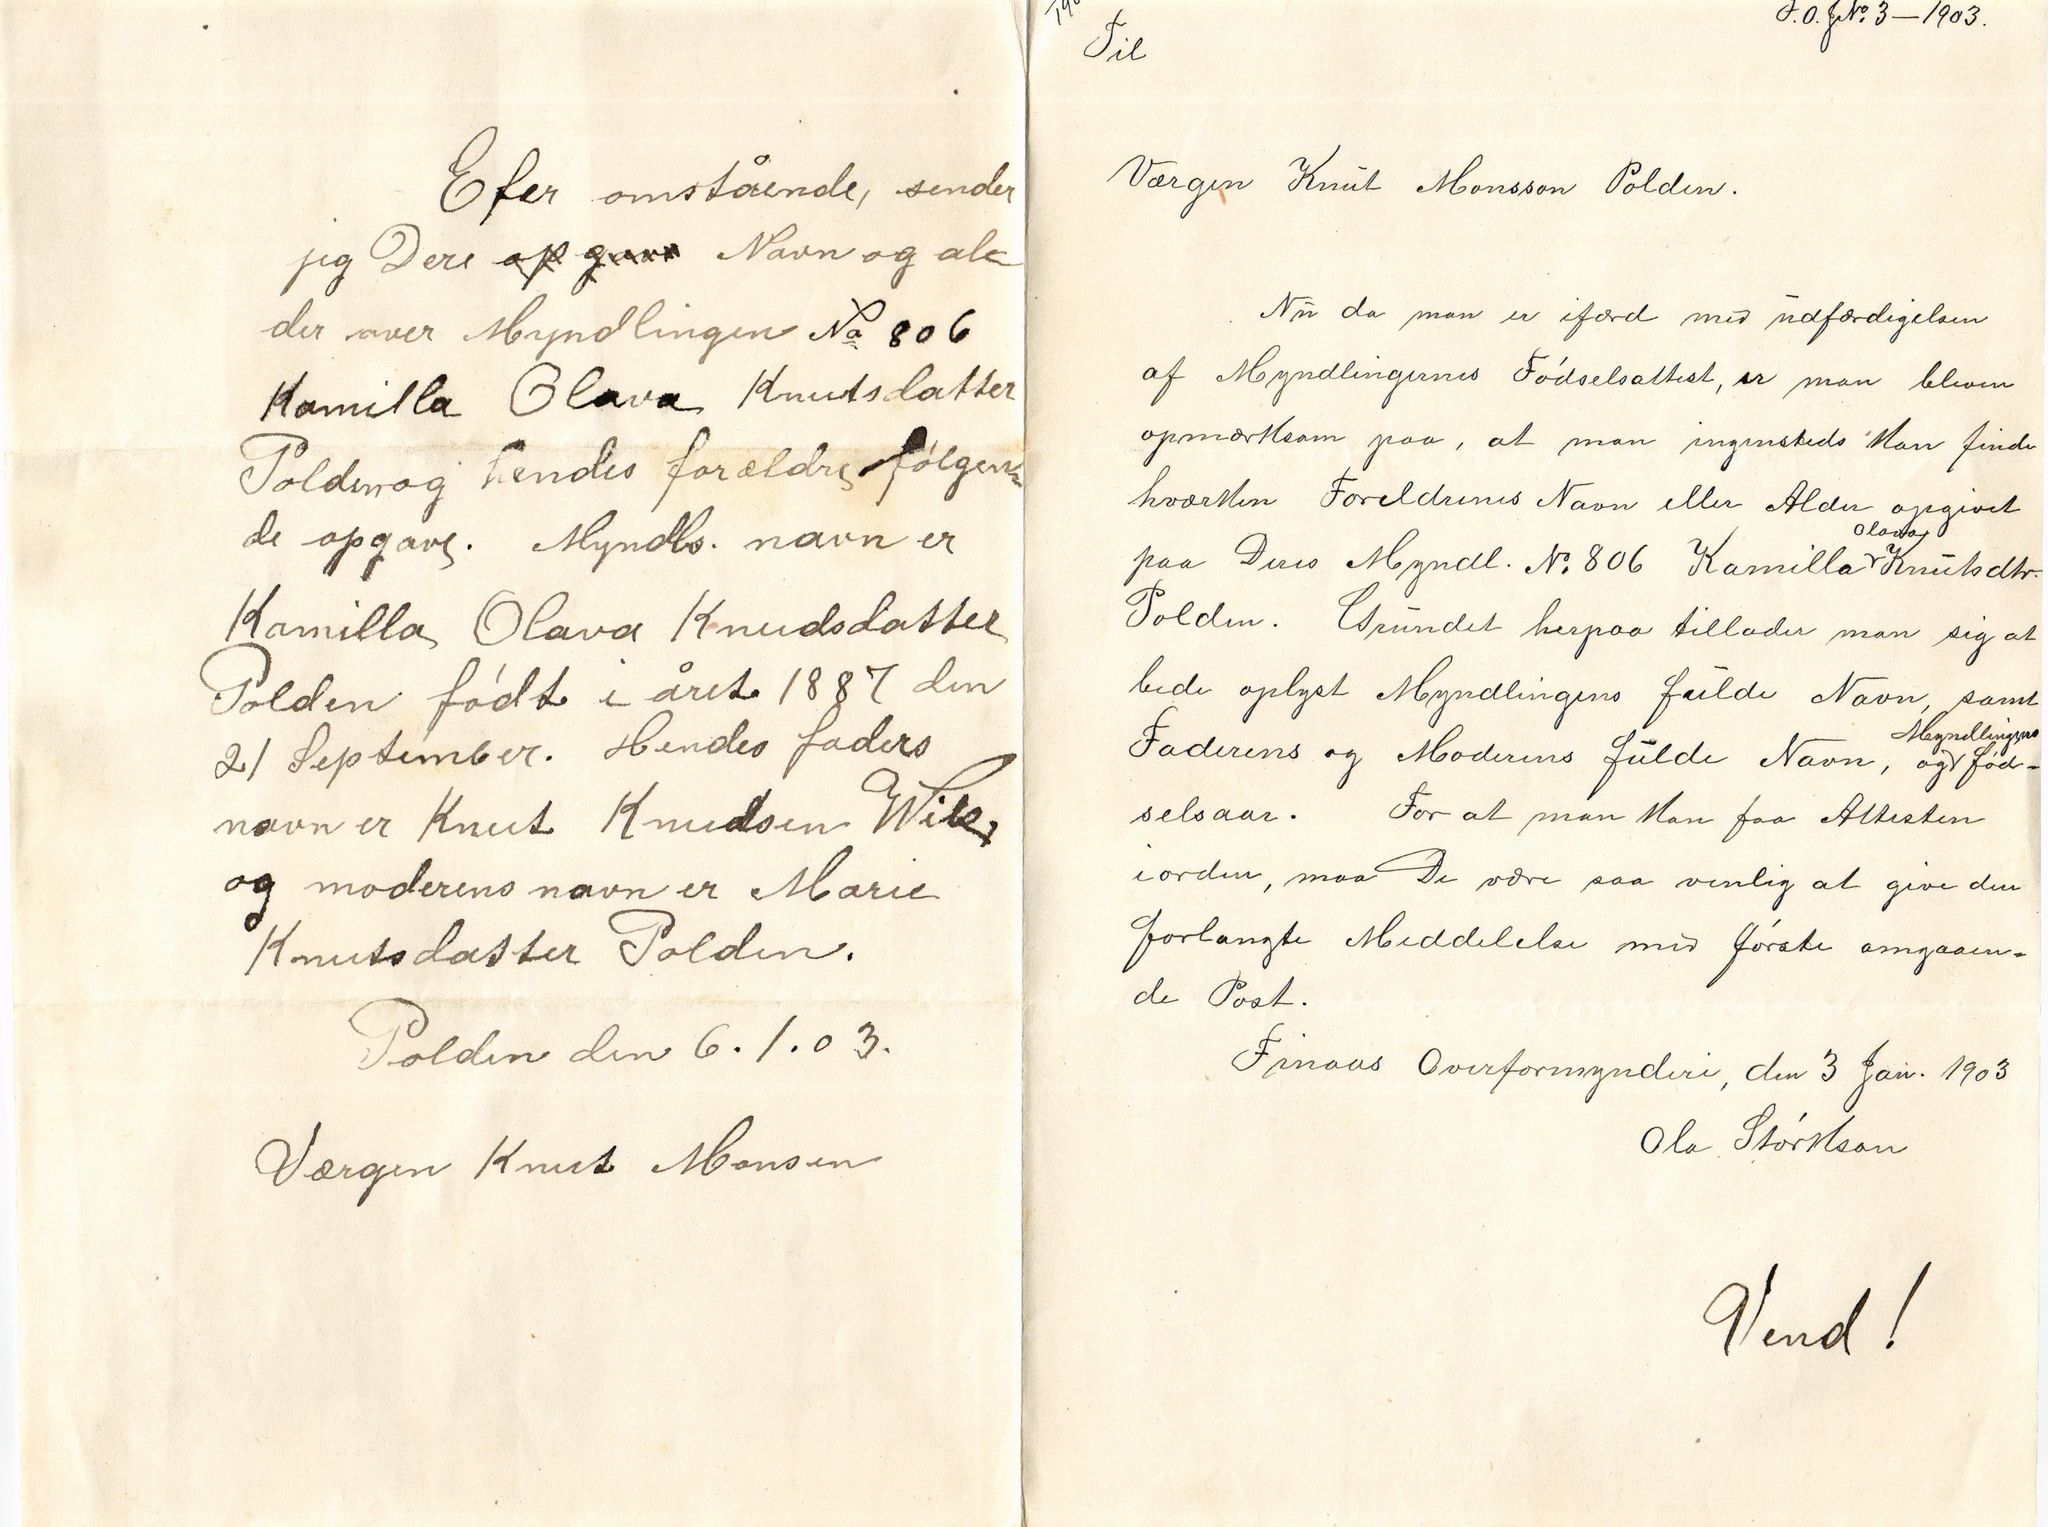 Efer omstående, sender
jeg Dere opgave Navn og al-
der over Myndlingen No 806
Kamilla Olava Knutsdatter
Polden og hendes forældre følgen-
de opgave. Myndls. navn er
Kamilla Olava Knudsdatter
Polden født i året 1887 den
21 September. Hendes faders
navn er Knut Knudsen Wik,
og moderens navn er Marie
Knutsdatter Polden.
Polden den 6.1.03.
Værgen Knut Monsen
F.O.J.No. 3-1903.
Til
Værgen Knut Monsson Polden.
Nu da man er ifærd med udfærdigelsen
af Myndlingernes Fødselsattest, er man bleven
opmærksom paa, at man ingensteds kan finde
hværken Foreldrenes Navn eller Alder opgivet
paa Deres Myndl. No. 806 Kamilla Olava Knutsdtr.
Polden. Grundet herpaa tillader man sig at
bede oplyst Myndlingens fulde Navn, samt
Faderens og Moderens fulde Navn, og Myndlingens fød-
selsaar. For at man kan faa Attesten
iorden, maa De være saa venlig at give den
forlangte Meddelelse med første omgaaen-
de Post.
Finaas Overformynderi, den 3 Jan. 1903
Ola Størkson
Vend!